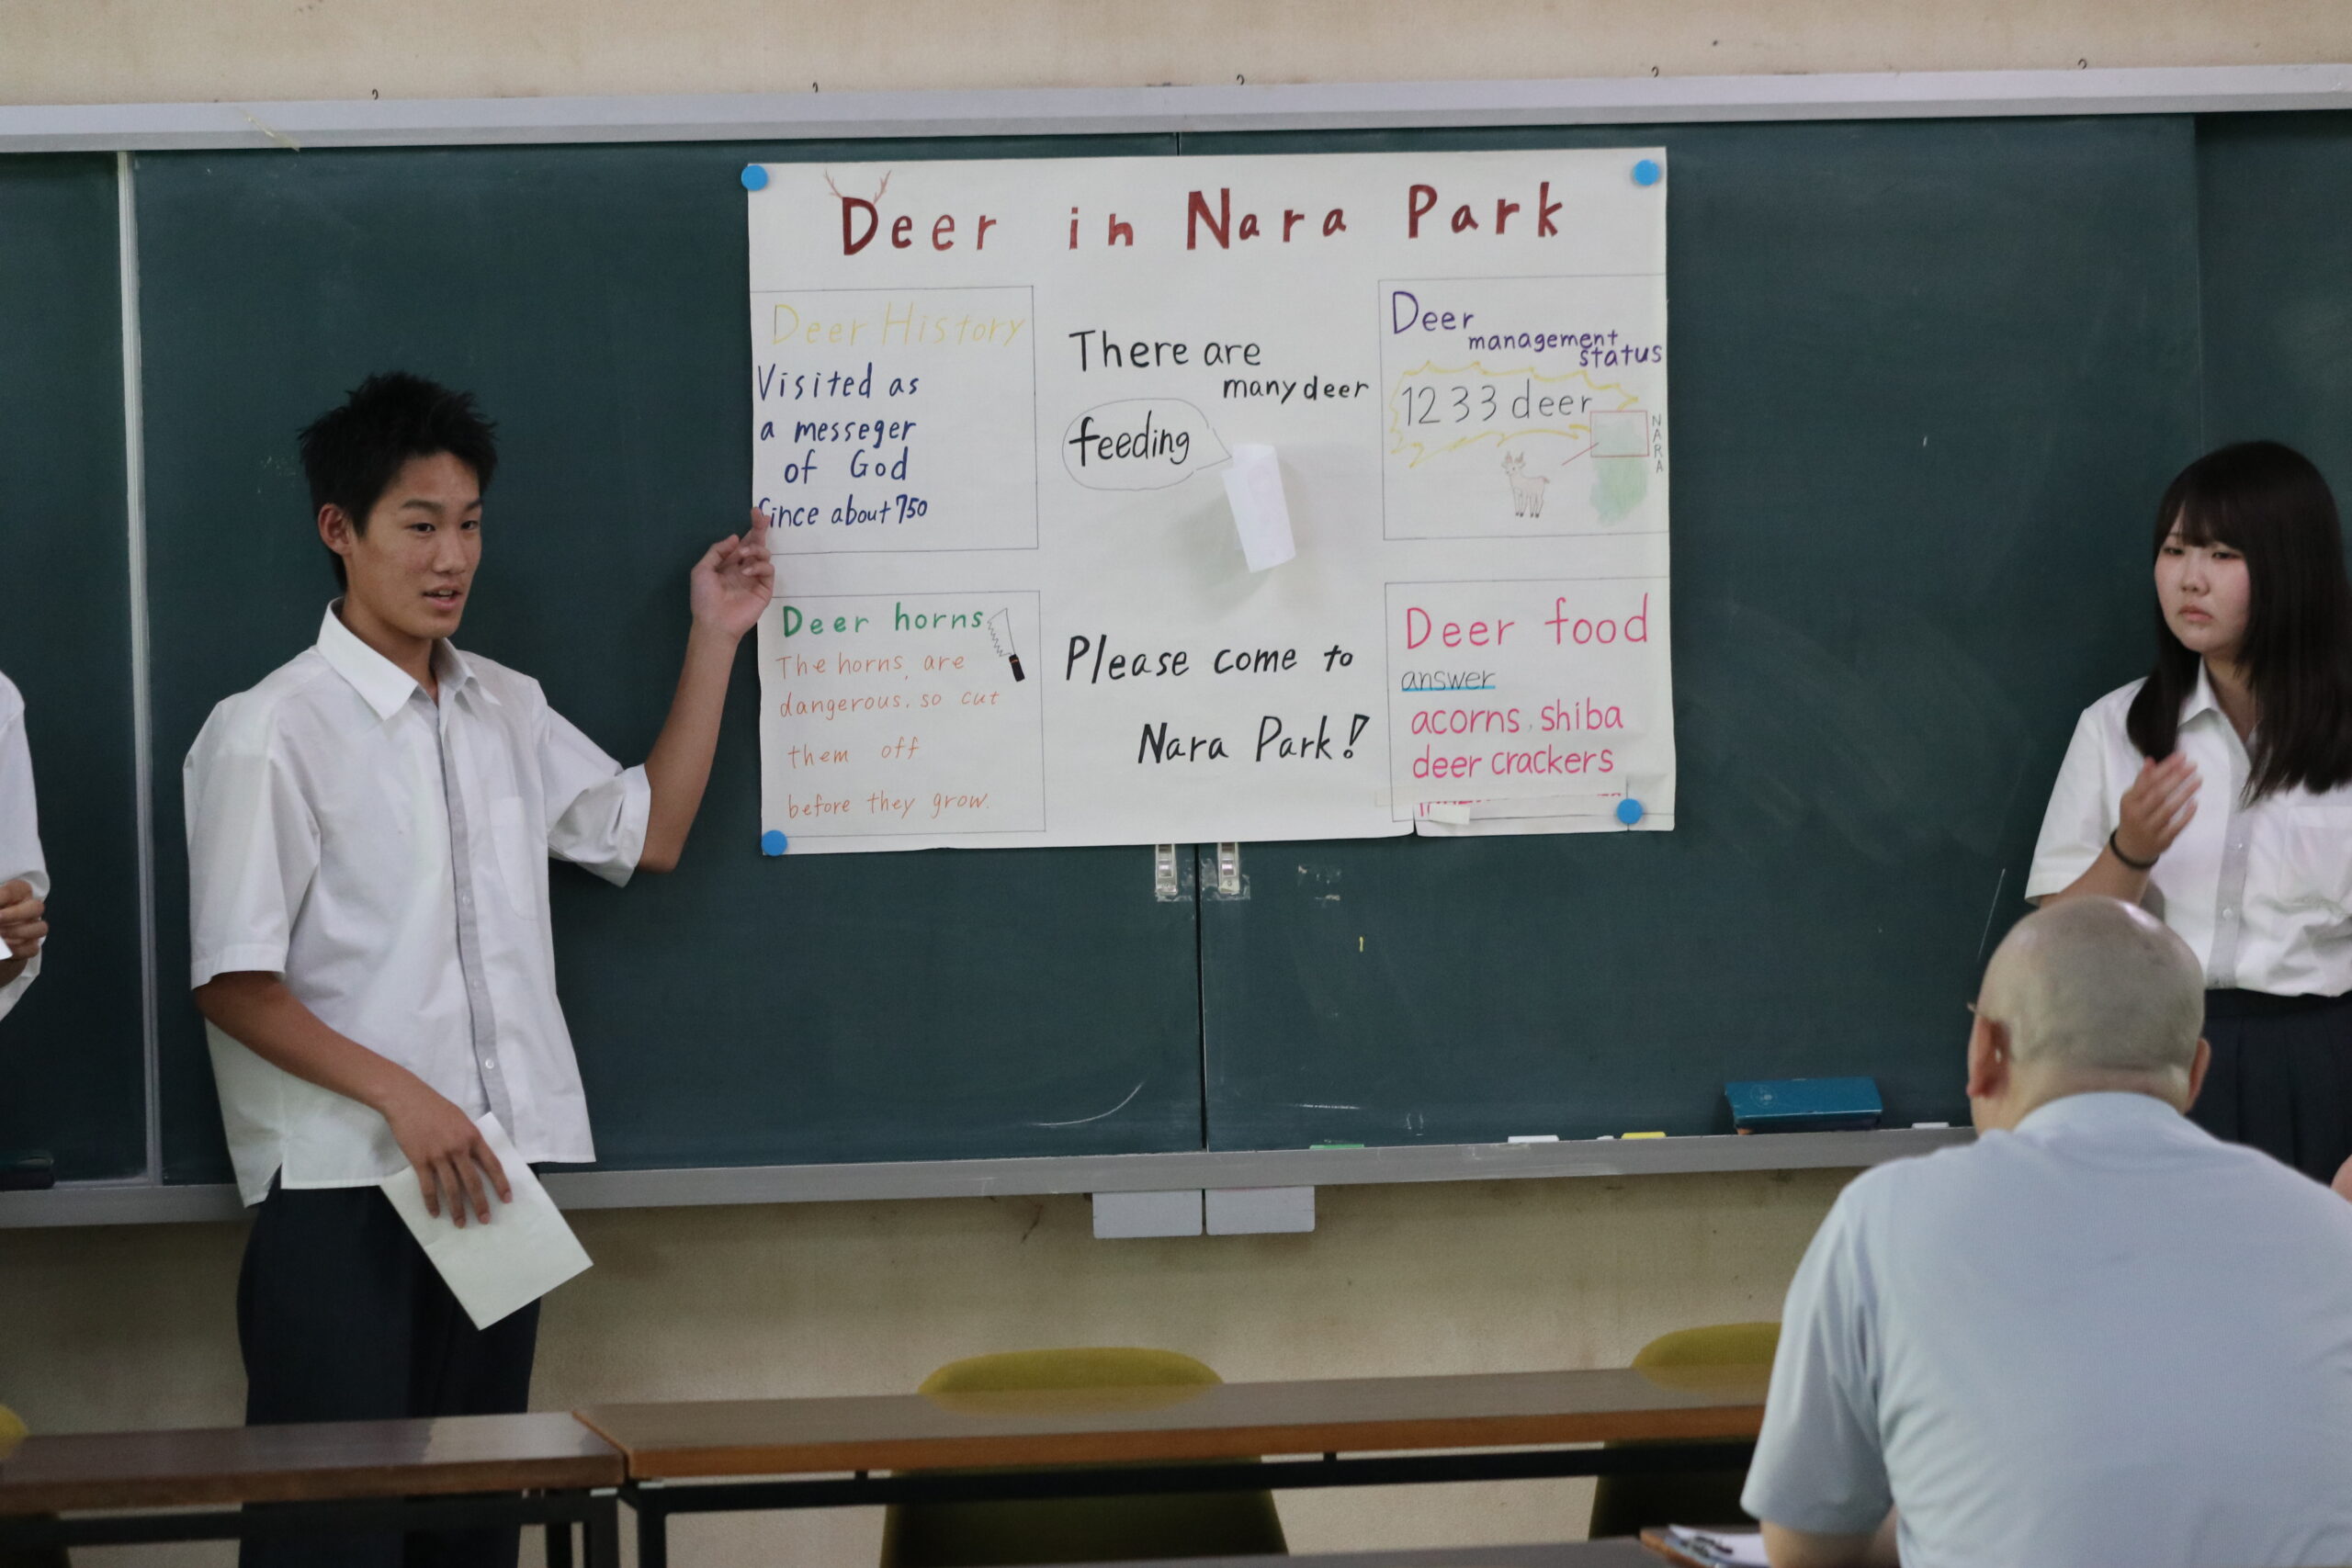 Deer in Nara Park
Deer History
Visited as
a messeger
of God
Since about 750
There are
many deer
feeding
Deer
management
status
1233 deer
NARA
Deer horns
The horns are
dangerous, so cut
them off
before they grow.
Please come to
Nara Park!
Deer food
answer
acorns, shiba
deer crackers